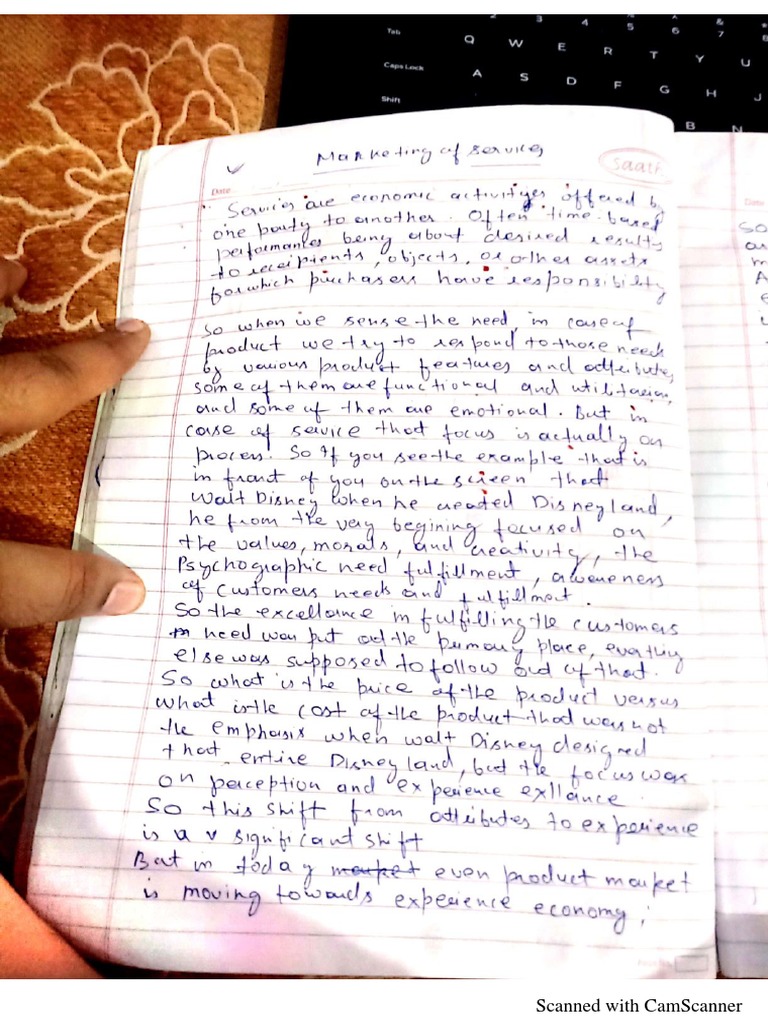 Tab
Caps Lock
Shift
3 4 5 6 7 8
Q W E R T Y U
A S D F G H J
B N
Marketing of services
Saath
Date
Services are economic activityes offered by
one party to another. Often time based
performances being about desired results
to receipients, objects, or other assets
for which purchasers have responsibility
So when we sense the need, in case of
product we try to respond to those needs
by various product features and attributes,
some of them are functional and utilitarian,
and some of them are emotional. But in
case of service that focus is actually on
process. So if you see the example that is
in front of you on the screen that
Walt Disney when he created Disneyland,
he from the very begining focused on
the values, morals, and creativity, the
Psychographic need fulfillment, awareness
of customers needs and fulfillment.
So the excellance in fulfilling the customers
need was put at the primary place, everthing
else was supposed to follow out of that.
So what is the price of the product versus
what is the cost of the product that was not
the emphasis when walt Disney designed
that entire Disneyland, but the focus was
on perception and experience exllance.
So this shift from attributes to experience
is a v significant shift
But in today market even product market
is moving towards experience economy;
Date
so
Page No.
Scanned with CamScanner